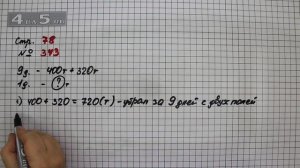 4 5
Стр. 78
№ 343
9д. - 400т + 320т
1д. - ? т
1) 400 + 320 = 720(т) - убрал за 9 дней с двух полей